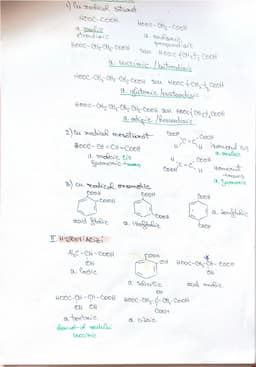 1) Cu radical saturat
HOOC-COOH HOOC-CH₂-COOH
a. oxalic a. malonic
etandioic propandioic
HOOC-CH₂-CH₂-COOH sau HOOC-(CH₂)₂-COOH
a. succinic / butandioic
HOOC-CH₂-CH₂-CH₂-COOH sau HOOC-(CH₂)₃-COOH
a. glutaric / pentandioic
HOOC-CH₂-CH₂-CH₂-CH₂-COOH sau HOOC-(CH₂)₄-COOH
a. adipic / hexandioic
2) Cu radical nesaturat
HOOC-CH=CH-COOH
a. maleic cis
fumaric trans
COOH COOH
C=C
H H
izomerul cis
a. maleic
H COOH
C=C
COOH H
izomerul trans
a. fumaric
3) Cu radical aromatic
COOH COOH COOH
COOH COOH COOH
acid ftalic a. izoftalic a. tereftalic
II HIDROXIACIZI
H₃C-CH-COOH
OH
a. lactic
COOH
OH
a. salicilic
HOOC-CH₂-CH-COOH
OH
acid malic
HOOC-CH-CH-COOH
OH OH
a. tartric
OH
HOOC-CH₂-C-CH₂-COOH
COOH
a. citric
succinic